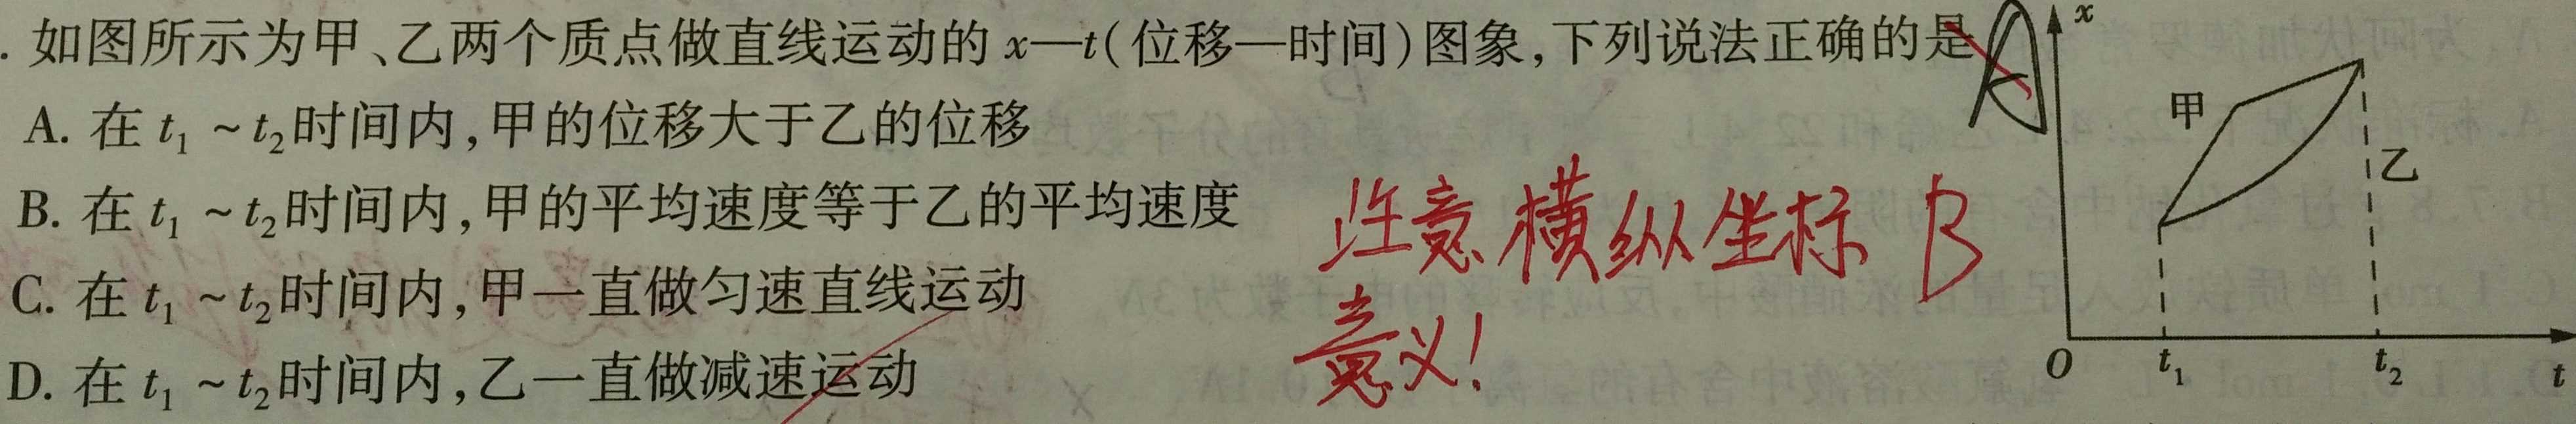 . 如图所示为甲、乙两个质点做直线运动的 x—t(位移—时间)图象,下列说法正确的是 A
A. 在 t₁ ~ t₂时间内,甲的位移大于乙的位移
B. 在 t₁ ~ t₂时间内,甲的平均速度等于乙的平均速度
C. 在 t₁ ~ t₂时间内,甲一直做匀速直线运动
D. 在 t₁ ~ t₂时间内,乙一直做减速运动
注意横纵坐标 B
意义!
x
甲
乙
O t₁ t₂ t